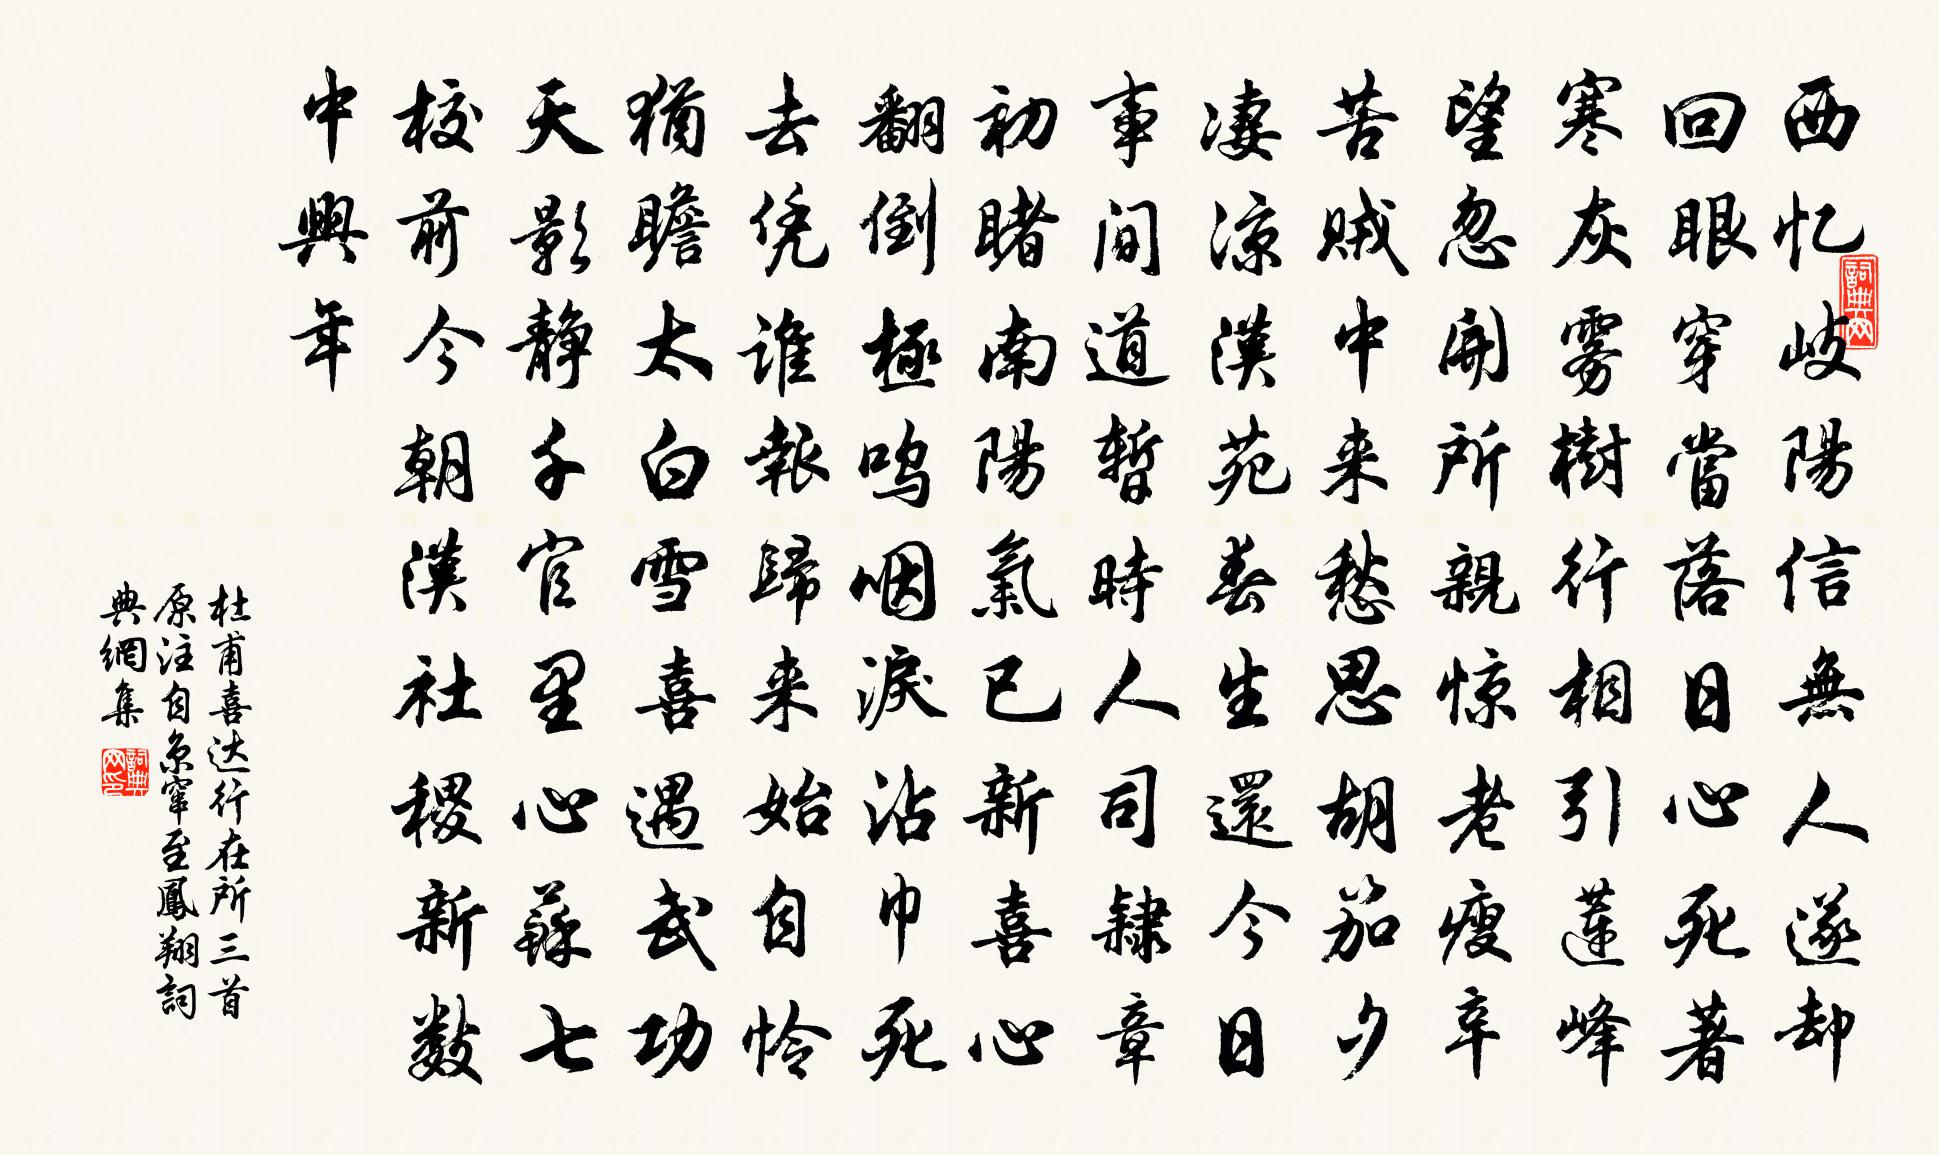 西忆岐陽信無人遂却
回眼穿當落日心死著
寒灰雾樹行相引蓮峰
望忽開所親惊老瘦辛
苦贼中来愁思胡笳夕
凄涼漢苑春生還今日
事间道暫時人司隸章
初睹南陽氣已新喜心
翻倒極鸣咽淚沾巾死
去凭谁報歸来始自怜
猶瞻太白雪喜遇武功
天影静千官里心蘇七
校前今朝漢社稷新数
中興年
杜甫喜达行在所三首
原注自京窜至鳳翔詞
典網集
詞典网
詞典网印